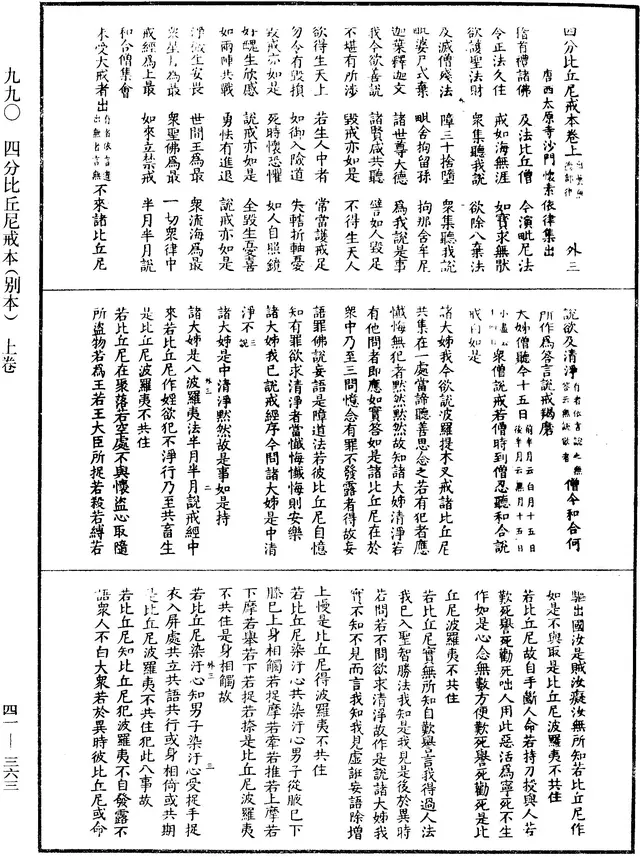 四分比丘尼戒本卷上 外三
唐西太原寺沙門懷素依律集出
稽首禮諸佛 及法比丘僧 今演毗尼法
令正法久住 戒如海無涯 如寶求無猒
欲護聖法財 衆集聽我說 欲除八棄法
及滅僧殘法 障三十捨墮 衆集聽我說
毗婆尸式棄 毗舍拘留孫 拘那含牟尼
迦葉釋迦文 諸世尊大德 為我說是事
我今欲善說 諸賢咸共聽 譬如人毀足
不堪有所涉 毀戒亦如是 不得生天人
欲得生天上 若生人中者 常當護戒足
勿令有毀損 如御入險道 失轄折軸憂
毀戒亦如是 死時懷恐懼 如人自照鏡
好醜生欣慼 說戒亦如是 全毀生憂喜
如兩陣共戰 勇怯有進退 說戒亦如是
淨穢生安畏 世間王為最 衆流海為最
衆星月為最 衆聖佛為最 一切衆律中
戒經為上最 如來立禁戒 半月半月說
和合僧集會
未受大戒者出 有者依言遣出無者言無 不來諸比丘尼
說欲及清淨 有者依言說之無答云無說欲者 僧今和合何
所作為答言說戒羯磨
大姊僧聽今十五日 前半月云白月十五日後半月云黑月十五日
衆僧說戒若僧時到僧忍聽和合說
戒白如是
諸大姊我今欲說波羅提木叉戒諸比丘尼
共集在一處當諦聽善思念之若有犯者應
懺悔無犯者默然默然故知諸大姊清淨若
有他問者即應如實答如是諸比丘尼在於
衆中乃至三問憶念有罪不發露者得故妄
語罪佛說妄語是障道法若彼比丘尼自憶
知有罪欲求清淨者當懺悔懺悔則安樂
諸大姊我已說戒經序今問諸大姊是中清
淨不 三說
諸大姊是中清淨默然故是事如是持
諸大姊是八波羅夷法半月半月說戒經中
來若比丘尼作婬欲犯不淨行乃至共畜生
是比丘尼波羅夷不共住
若比丘尼在聚落若空處不與懷盜心取隨
所盜物若為王若王大臣所捉若殺若縛若
驅出國汝是賊汝癡汝無所知若比丘尼作
如是不與取是比丘尼波羅夷不共住
若比丘尼故自手斷人命若持刀授與人若
歎死譽死勸死咄人用此惡活為寧死不生
作如是心念無數方便歎死譽死勸死是比
丘尼波羅夷不共住
若比丘尼實無所知自歎譽言我得過人法
我已入聖智勝法我知是我見是後於異時
若問若不問欲求清淨故作是說諸大姊我
實不知不見而言我知我見虛誑妄語除增
上慢是比丘尼得波羅夷不共住
若比丘尼染汙心共染汙心男子從腋已下
膝已上身相觸若捉摩若牽若推若上摩若
下摩若舉若下若捉若捺是比丘尼波羅夷
不共住是身相觸故
若比丘尼染汙心知男子染汙心受捉手捉
衣入屏處共立共語共行或身相倚或共期
是比丘尼波羅夷不共住犯此八事故
若比丘尼知比丘尼犯波羅夷不自發露不
語衆人不白大衆若於異時彼比丘尼或命
九九〇 四分比丘尼戒本(别本) 上卷
四一—三六三